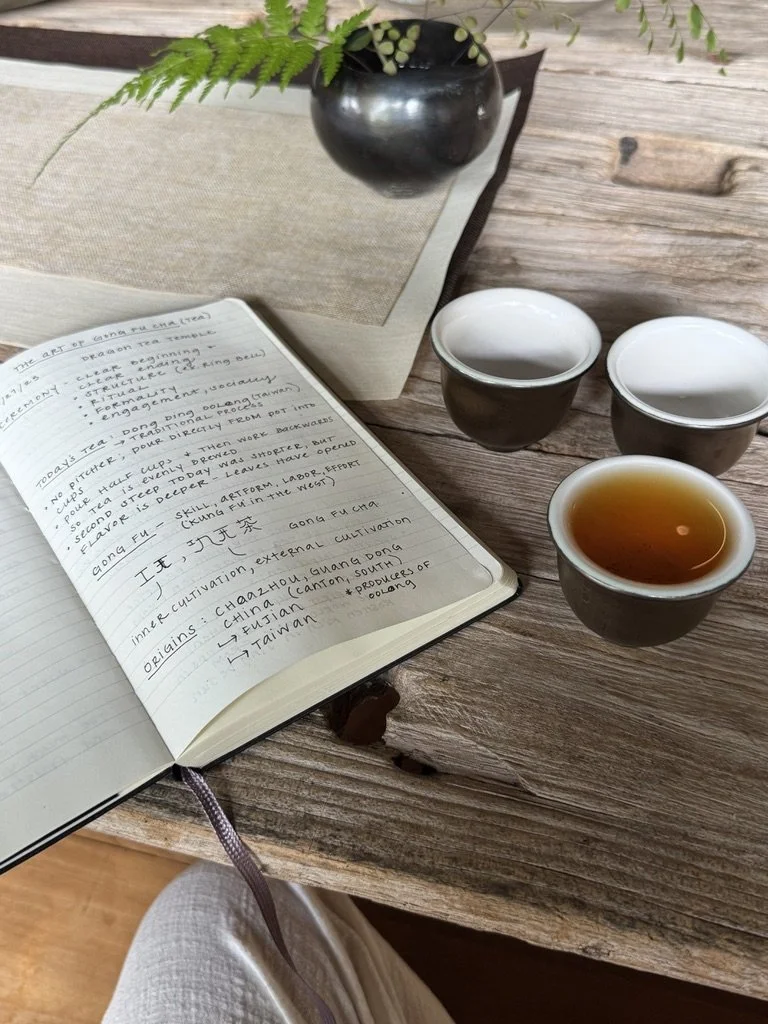 THE ART OF GONG FU CHA (TEA)
DRAGON TEA TEMPLE
CEREMONY - CLEAR BEGINNING +
CLEAR ENDING
• STRUCTURE (ex. RING BELL)
• RITUAL
• FORMALITY
• engagement, socially
TODAY'S TEA: DONG DING OOLONG (TAIWAN),
→ TRADITIONAL PROCESS
• NO PITCHER, POUR DIRECTLY FROM POT INTO
CUPS
• POUR HALF CUPS + THEN WORK BACKWARDS
SO TEA IS EVENLY BREWED
• SECOND STEEP TODAY WAS SHORTER, BUT
FLAVOR IS DEEPER - LEAVES HAVE OPENED
GONG FU - SKILL, ARTFORM, LABOR, EFFORT
(KUNG FU in THE WEST)
茶 GONG FU CHA
inner CULTIVATION, external CULTIVATION
ORIGINS: CHAOZHOU, GUANG DONG
CHINA (CANTON, SOUTH)
↳ FUJIAN *PRODUCERS OF
OOLONG
↳ TAIWAN